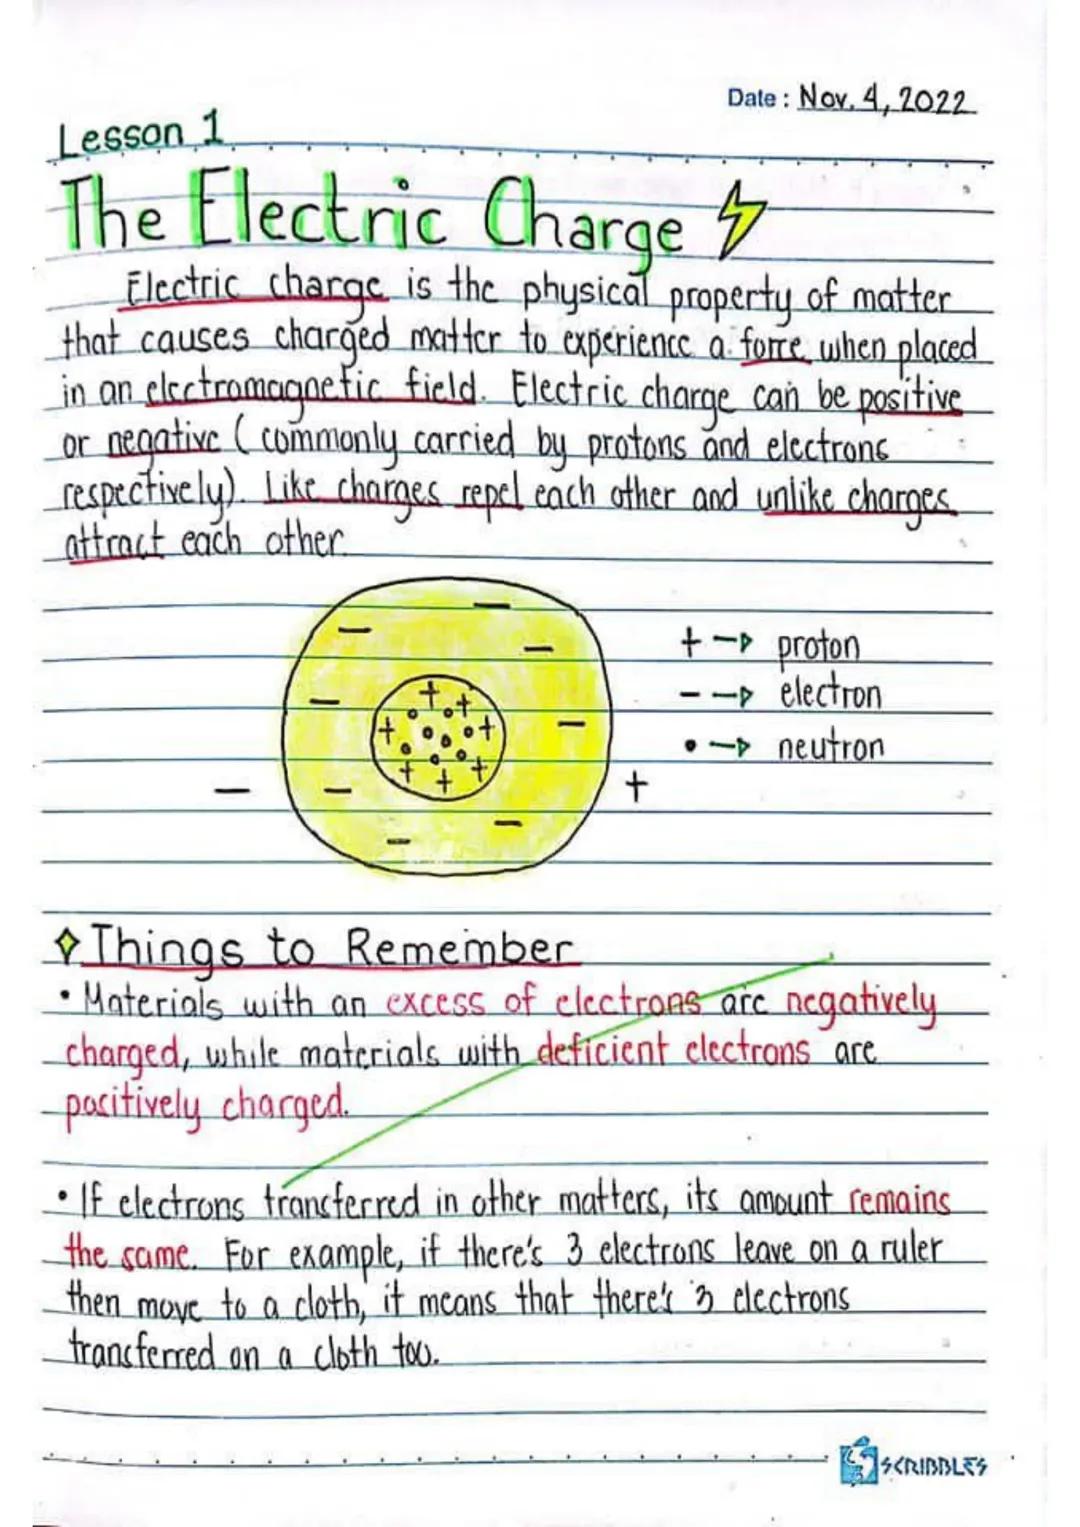 Date : Nov. 4, 2022
Lesson 1
The Electric Charge
Electric charge is the physical property of matter
that causes charged matter to experience a force when placed
in an electromagnetic field. Electric charge can be positive
or negative (commonly carried by protons and electrons
respectively). Like charges repel each other and unlike charges
attract each other.
+ → proton
− → electron
• → neutron
− +
Things to Remember
• Materials with an excess of electrons are negatively
charged, while materials with deficient electrons are
positively charged.
• If electrons transferred in other matters, its amount remains
the same. For example, if there's 3 electrons leave on a ruler
then move to a cloth, it means that there's 3 electrons
transferred on a cloth too.
SCRIBBLES